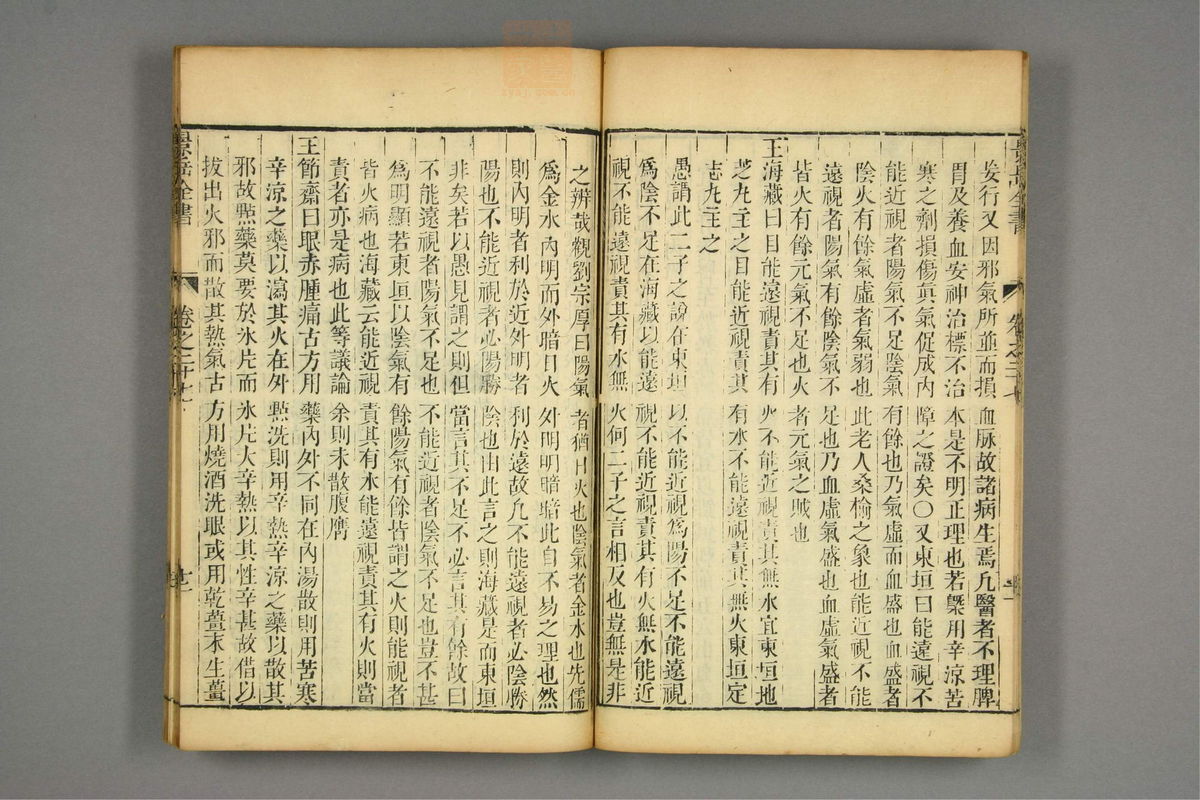 妄行又因邪氣所並而損血脉故諸病生焉凡醫者不理脾
胃及養血安神治標不治本是不明正理也若槩用辛涼苦
寒之劑損傷真氣促成內障之證矣〇又東垣曰能遠視不
能近視者陽氣不足陰氣有餘也乃氣虛而血盛也血盛者
陰火有餘氣虛者氣弱也此老人桑榆之象也能近視不能
遠視者陽氣有餘陰氣不足也乃血虛氣盛也血虛氣盛者
皆火有餘元氣不足也火者元氣之賊也
王海藏曰目能遠視責其有火不能近視責其無水宜東垣地
芝丸主之目能近視責其有水不能遠視責其無火東垣定
志丸主之
愚謂此二子之說在東垣以不能近視爲陽不足不能遠視
爲陰不足在海藏以能遠視不能近視責其有火無水能近
視不能遠視責其有水無火何二子之言相反也豈無是非
之辨哉觀劉宗厚曰陽氣者猶日火也陰氣者金水也先儒
爲金水內明而外暗日火外明明暗暗此自不易之理也然
則內明者利於近外明者利於遠故凡不能遠視者必陰勝
陽也不能近視者必陽勝陰也由此言之則海藏是而東垣
非矣若以愚見謂之則但當言其不足不必言其有餘故曰
不能遠視者陽氣不足也不能近視者陰氣不足也豈不甚
爲明顯若東垣以陰氣有餘陽氣有餘皆謂之火則能視者
皆火病也海藏云能近視責其有水能遠視責其有火則當
責者亦是病也此等議論余則未敢服膺
王節齋曰眼赤腫痛古方用藥內外不同在內湯散則用苦寒
辛涼之藥以瀉其火在外㸃洗則用辛熱辛涼之藥以散其
邪故㸃藥莫要於氷片而氷片大辛熱以其性辛甚故借以
拔出火邪而散其熱氣古方用燒酒洗眼或用乾薑末生薑
景岳全書
卷之二十七